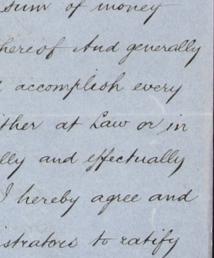 sum of money
hereof And generally
accomplish every
ither at Law or in
lly and effectually
I hereby agree and
istrators to ratify